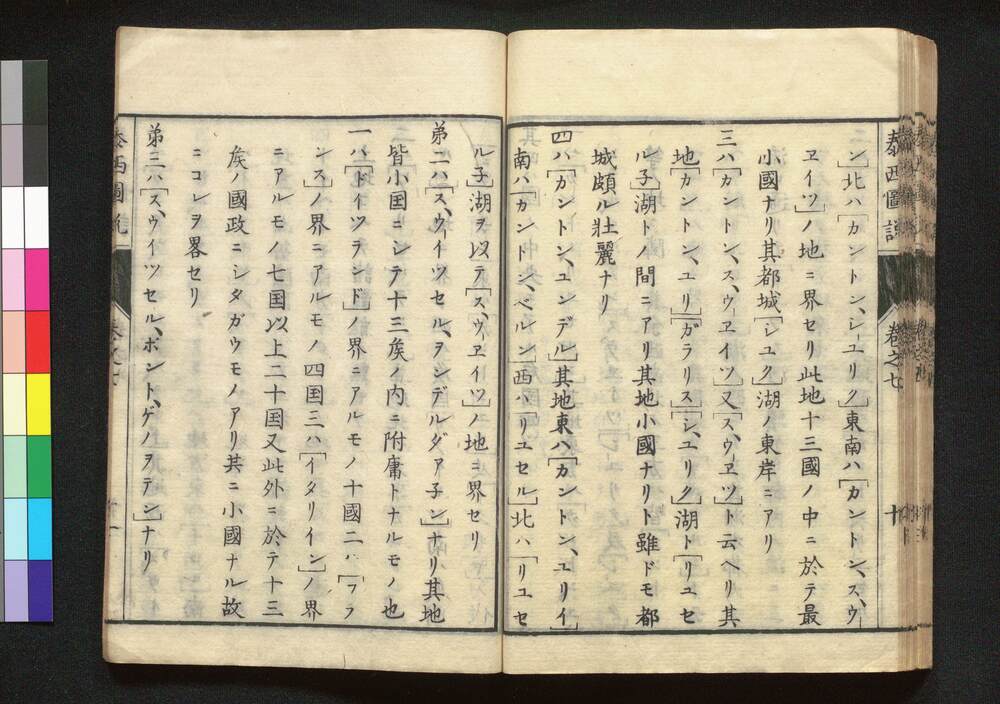 泰西圖説 巻之七 十
ン」北ハ「カントン、シーユリク」東南ハ「カントン、スウー
ヱイツ」ノ地ニ界セリ此地十三國ノ中ニ於テ最
小國ナリ其都城「シユク」湖ノ東岸ニアリ
三ハ「カントン、スウーヱイツ」又「スウヱツ」ト云ヘリ其
地「カントン、ユリ」「ガラリス」「シーユリク」湖ト「リユセ
ル子」湖トノ間ニアリ其地小國ナリト雖ドモ都
城頗ル壮麗ナリ
四ハ「カントン、ユンデル」其地東ハ「カントン、ユリイ」
南ハ「カントン、ベルン」西ハ「リユセル」北ハ「リユセ
ル子」湖ヲ以テ「スウーヱイツ」ノ地ニ界セリ
弟二ハ「スウイツセル、ヲンデルダア子ン」ナリ其地
皆小国ニシテ十三矦ノ内ニ附庸トナルモノ也
一ハ「ドイツランド」ノ界ニアルモノ十國二ハ「フラ
ンス」ノ界ニアルモノ四国三ハ「イタリイン」ノ界
ニアルモノ七国以上二十国又此外ニ於テ十三
矦ノ國政ニシタガウモノアリ其ニ小國ナル故
ニコレヲ畧セリ
弟三ハ「スウイツセル、ボント、ゲノヲテン」ナリ
泰西圖説 巻之七 十一